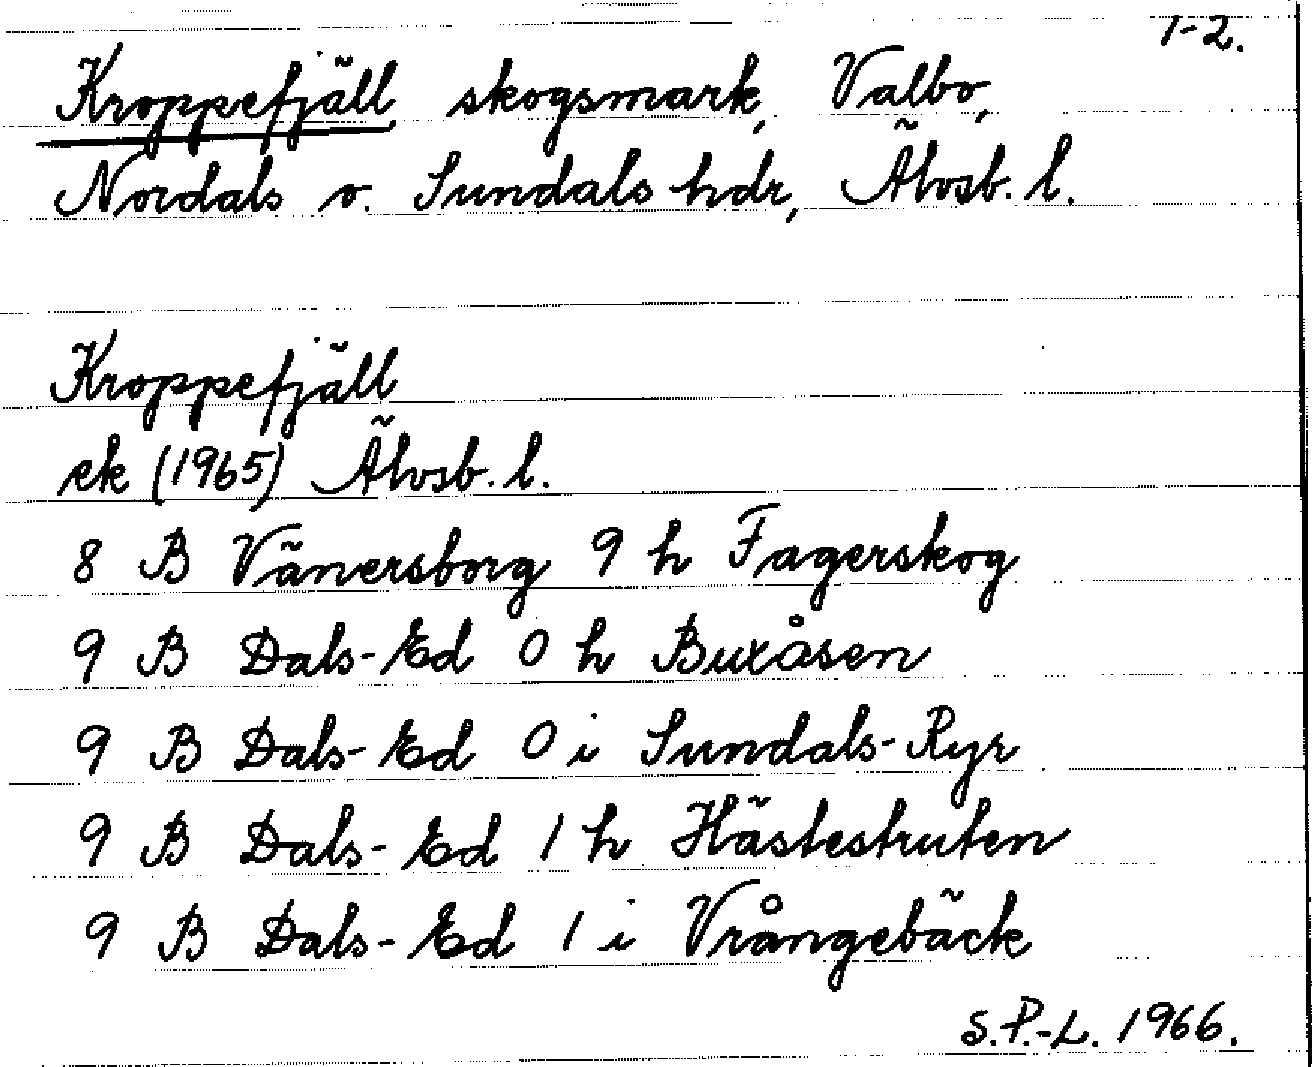 1-2.
Kroppefjäll, skogsmark, Valbo,
Nordals o. Sundals hdr, Älvsb. l.
Kroppefjäll
ek (1965) Älvsb. l.
8 B Vänersborg 9 h Fagerskog
9 B Dals-Ed 0 h Buxåsen
9 B Dals-Ed 0 i Sundals-Ryr
9 B Dals-Ed 1 h Hästestruten
9 B Dals-Ed 1 i Vrångebäck
S.P.-L. 1966.